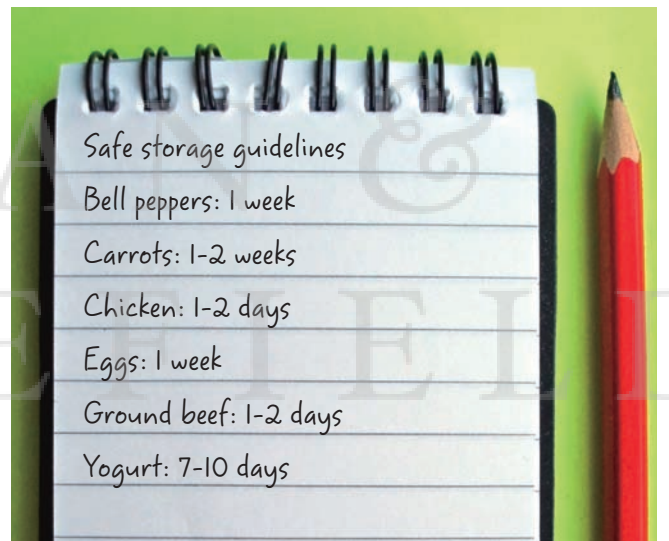 Safe storage guidelines
Bell peppers: 1 week
Carrots: 1-2 weeks
Chicken: 1-2 days
Eggs: 1 week
Ground beef: 1-2 days
Yogurt: 7-10 days